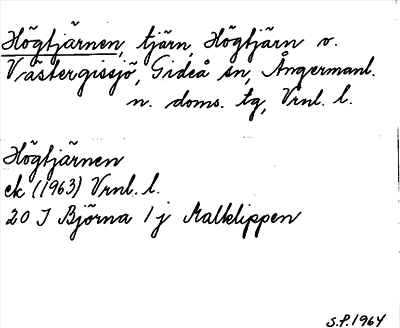 Högtjärnen, tjärn, Högtjärn v.
Västergissjö, Gideå sn, Ångermanl.
n. doms. tg, Vrnl. l.
Högtjärnen
ek (1963) Vrnl. l.
20 I Björna 1 j Malklippen
S.P. 1964